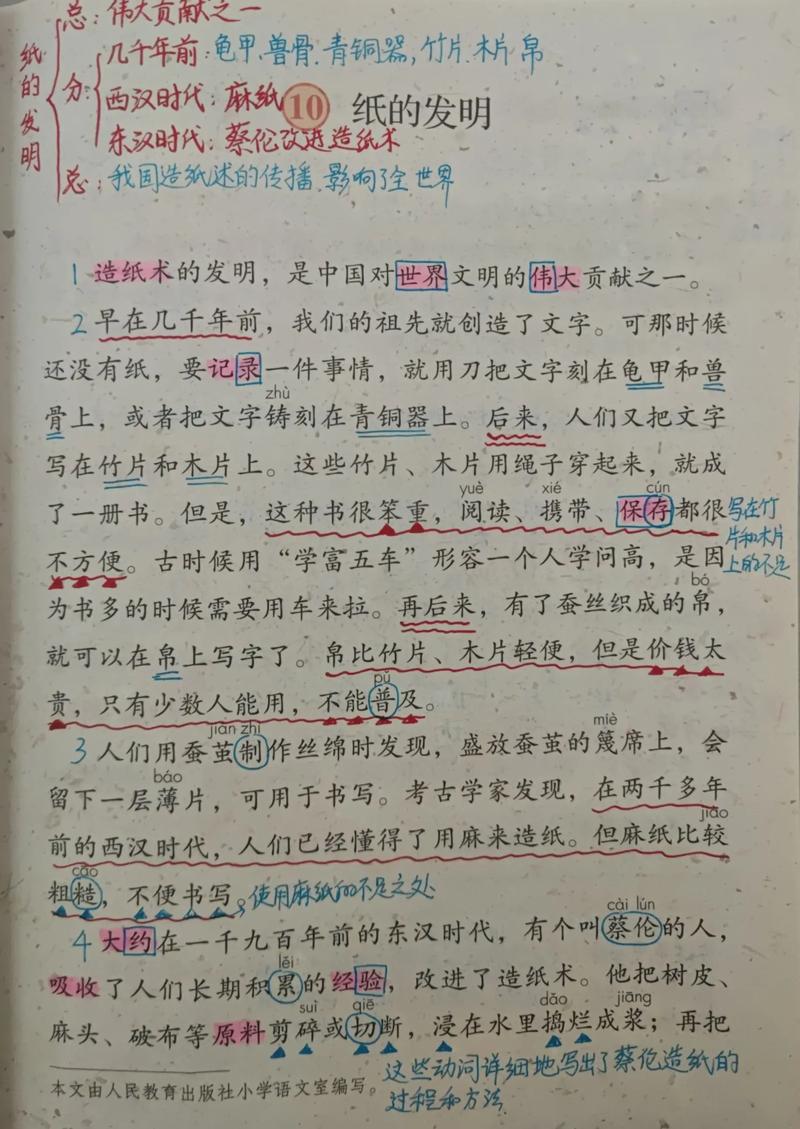 纸的发明
总：伟大贡献之一
分：
几千年前：龟甲、兽骨、青铜器，竹片、木片 帛
西汉时代：麻纸
东汉时代：蔡伦改进造纸术
总：我国造纸述的传播 影响了全世界
10 纸的发明
1 造纸术的发明，是中国对世界文明的伟大贡献之一。
2 早在几千年前，我们的祖先就创造了文字。可那时候
还没有纸，要记录一件事情，就用刀把文字刻在龟甲和兽
zhù
骨上，或者把文字铸刻在青铜器上。后来，人们又把文字
写在竹片和木片上。这些竹片、木片用绳子穿起来，就成
yuè xié cún
了一册书。但是，这种书很笨重，阅读、携带、保存都很
写在竹
片和木片
上的不足
不方便。古时候用“学富五车”形容一个人学问高，是因
bó
为书多的时候需要用车来拉。再后来，有了蚕丝织成的帛，
就可以在帛上写字了。帛比竹片、木片轻便，但是价钱太
pǔ
贵，只有少数人能用，不能普及。
jiǎn zhì miè
3 人们用蚕茧制作丝绵时发现，盛放蚕茧的篾席上，会
báo
留下一层薄片，可用于书写。考古学家发现，在两千多年
jiào
前的西汉时代，人们已经懂得了用麻来造纸。但麻纸比较
cāo
粗糙，不便书写。使用麻纸的不足之处
cài lún
4 大约在一千九百年前的东汉时代，有个叫蔡伦的人，
lěi
吸收了人们长期积累的经验，改进了造纸术。他把树皮、
suì qiē dǎo jiāng
麻头、破布等原料剪碎或切断，浸在水里捣烂成浆；再把
这些动词详细地写出了蔡伦造纸的
过程和方法
本文由人民教育出版社小学语文室编写。